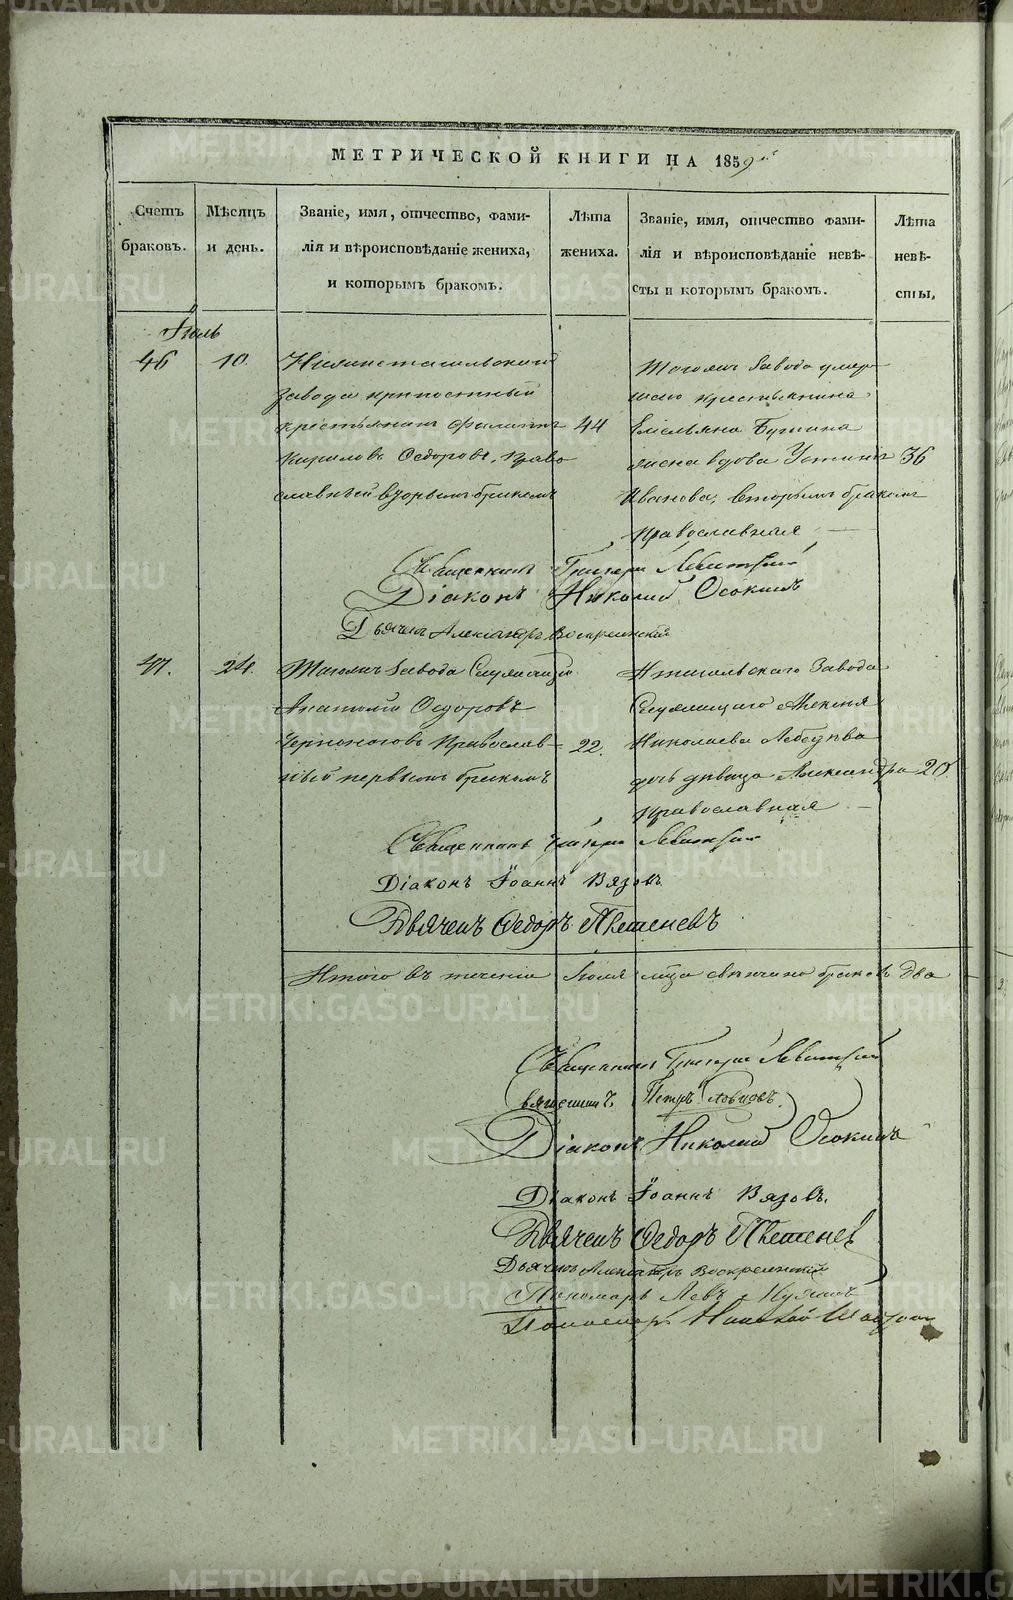 МЕТРИЧЕСКОЙ КНИГИ НА 1859й
Счетъ браковъ.
Мѣсяцъ и день.
Званіе, имя, отчество, фами-
лія и вѣроисповѣданіе жениха,
и которымъ бракомъ.
Лѣта жениха.
Званіе, имя, отчество фами-
лія и вѣроисповѣданіе невѣ-
сты и которымъ бракомъ.
Лѣта невѣ-
сты.
Іюль
46
10.
Нижнетагильскаго
завода крепостный
крестьянинъ Филиппъ
Кириловъ Ѳедоровъ, право
славный вторымъ бракомъ
44
Тогожъ Завода умер
шаго крестьянина
Емельяна
жена вдова Устинія
Иванова, вторымъ бракомъ
православная
36
Священникъ Григорій Левитскій
Діаконъ Николай Осокинъ
Дьячекъ Александръ Воскресенскій
47.
24.
Тогожъ Завода Служащій
Анатолій Ѳедоровъ
Черноноговъ Православ
ный первымъ бракомъ
22.
Нтагильскаго Завода
Служащаго Алексѣя
Николаева
дочь дѣвица Александра
православная
20
Священникъ Григорій Левитскій
Діаконъ Іоаннъ Вязовъ
Дьячекъ Ѳедоръ
Итого въ теченіи Іюля м-ца свѣнчано браковъ два
Священникъ Григорій Левитскій
Священникъ Петръ
Діаконъ Николай Осокинъ
Діаконъ Іоаннъ Вязовъ.
Дьячекъ Ѳедоръ
Дьячекъ Александръ Воскресенскій
Пономарь Левъ
Пономарь Николай
METRIKI.GASO-URAL.RU